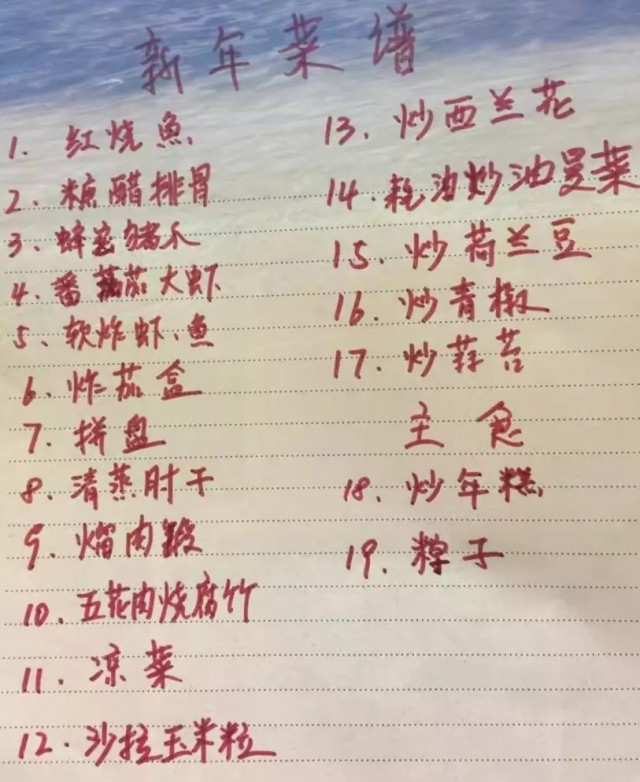 新年菜谱
1. 红烧魚
2. 糖醋排骨
3. 蜂蜜猪爪
4. 番茄大虾
5、软炸虾、鱼
6. 炸茄盒
7. 拼盘
8. 清蒸肘子
9. 熘肉
10. 五花肉烧腐竹
11. 凉菜
12. 沙拉玉米粒
13. 炒西兰花
14. 耗油炒油曼菜
15. 炒荷兰豆
16. 炒青椒
17. 炒蒜苔
主食
18. 炒年糕
19. 粽子